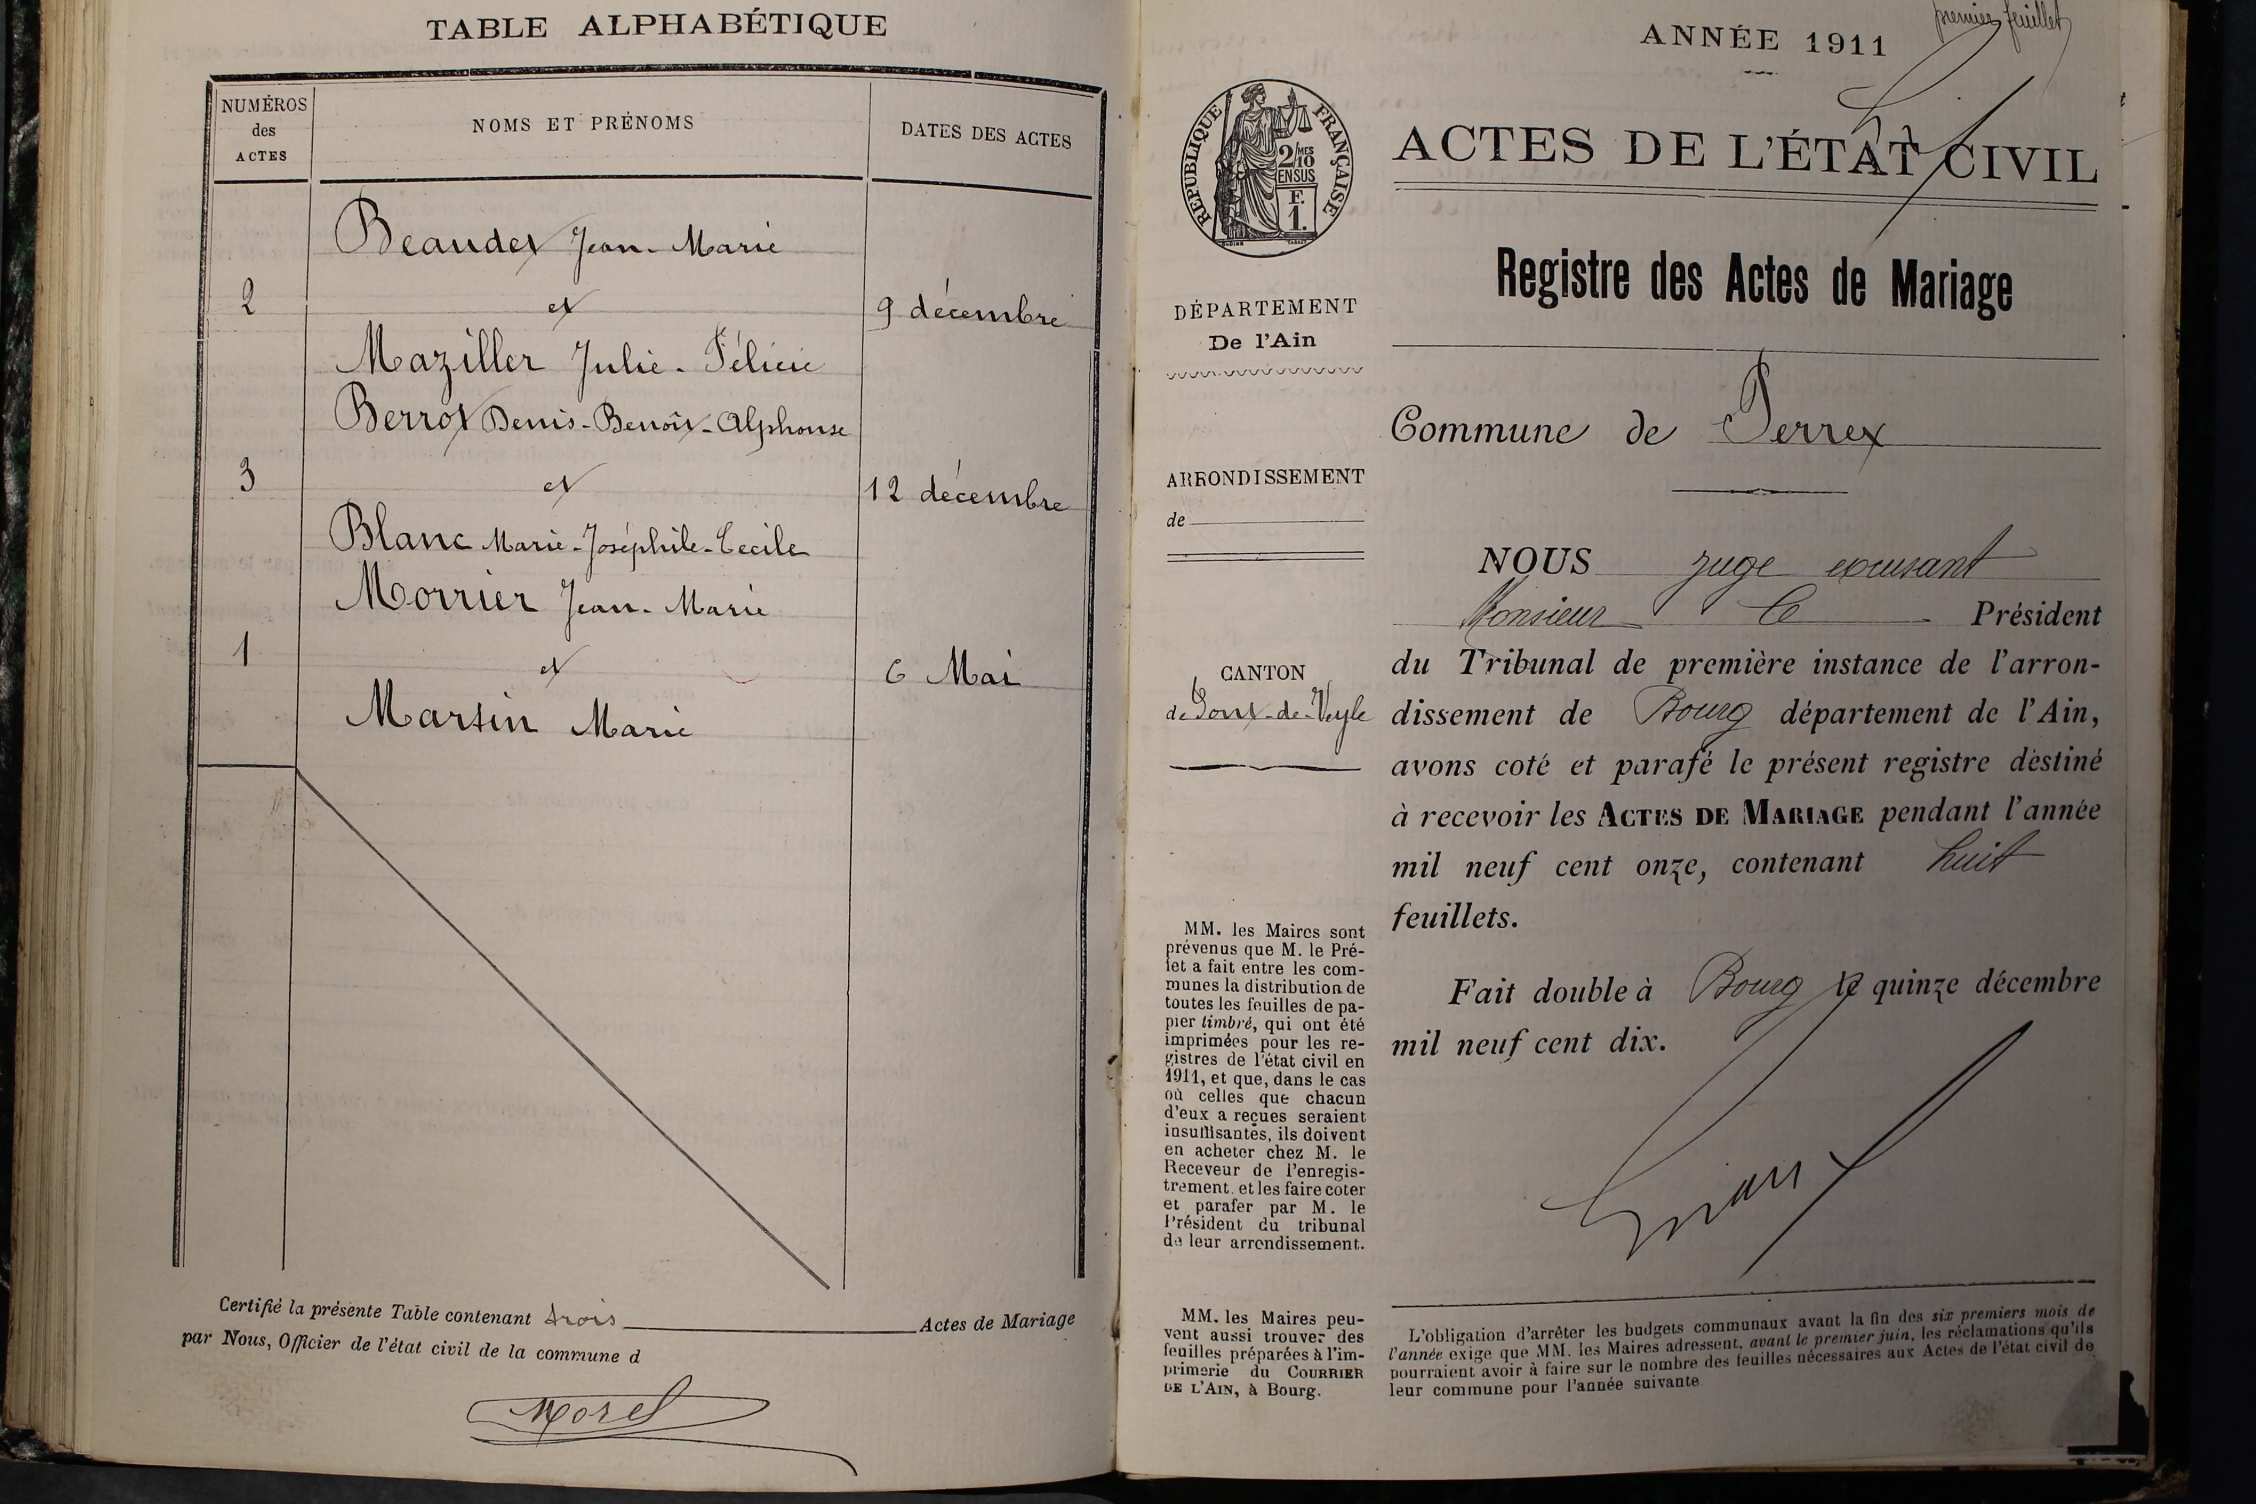 TABLE ALPHABÉTIQUE
NUMÉROS
des
ACTES
NOMS ET PRÉNOMS
DATES DES ACTES
Beaudet Jean-Marie
2
et
9 décembre
Maziller Julie-Félicie
Berrot Denis-Benoît-Alphonse
3
et
12 décembre
Blanc Marie-Joséphile-Cecile
Morrier Jean-Marie
1
et
6 Mai
Martin Marie
Certifié la présente Table contenant trois Actes de Mariage
par Nous, Officier de l'état civil de la commune d
Morel
premier feuillet
ANNÉE 1911
RÉPUBLIQUE FRANÇAISE
2/MES
10
EN SUS
F.
1.
ACTES DE L'ÉTAT CIVIL
Registre des Actes de Mariage
DÉPARTEMENT
De l'Ain
Commune de Perrex
ARRONDISSEMENT
de
CANTON
de Pont-de-Veyle
NOUS juge excusant
Monsieur le Président
du Tribunal de première instance de l'arron-
dissement de Bourg département de l'Ain,
avons coté et parafé le présent registre destiné
à recevoir les ACTES DE MARIAGE pendant l'année
mil neuf cent onze, contenant huit
feuillets.
Fait double à Bourg le quinze décembre
mil neuf cent dix.
MM. les Maires sont
prévenus que M. le Pré-
fet a fait entre les com-
munes la distribution de
toutes les feuilles de pa-
pier timbré, qui ont été
imprimées pour les re-
gistres de l'état civil en
1911, et que, dans le cas
où celles que chacun
d'eux a reçues seraient
insuffisantes, ils doivent
en acheter chez M. le
Receveur de l'enregis-
trement. et les faire coter
et parafer par M. le
Président du tribunal
de leur arrondissement.
MM. les Maires peu-
vent aussi trouver des
feuilles préparées à l'im-
primerie du COURRIER
DE L'AIN, à Bourg.
L'obligation d'arrêter les budgets communaux avant la fin des six premiers mois de
l'année exige que MM. les Maires adressent, avant le premier juin, les réclamations qu'ils
pourraient avoir à faire sur le nombre des feuilles nécessaires aux Actes de l'état civil de
leur commune pour l'année suivante